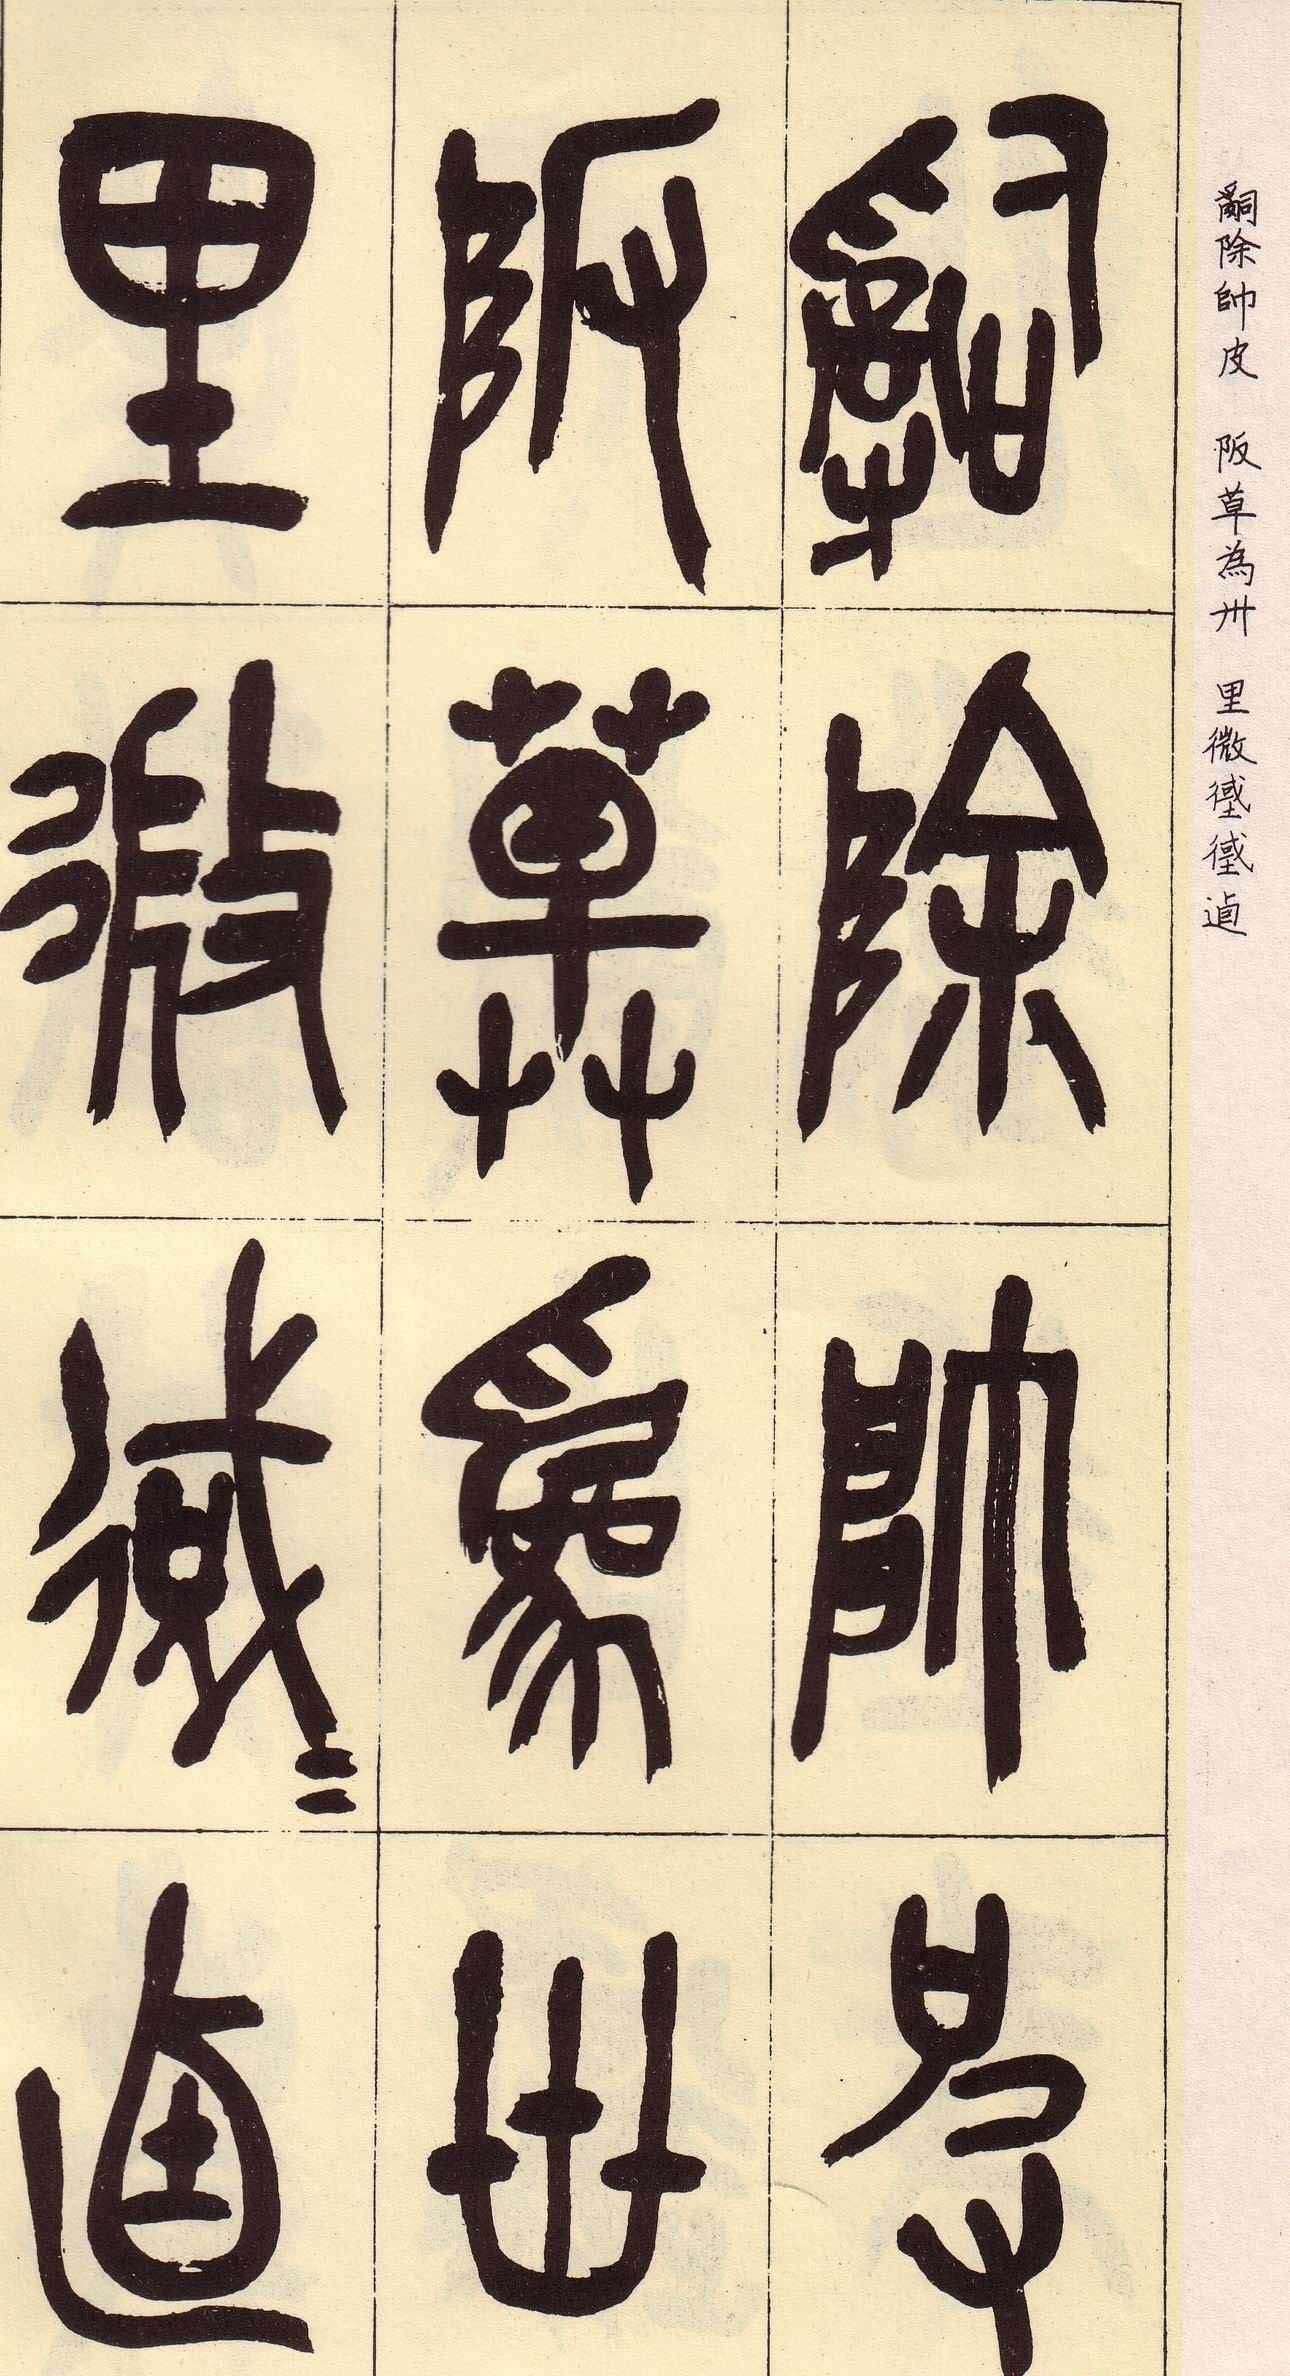 嗣除帥皮 阪草為卅 里微徥徥逌
嗣除帥皮
阪草為卅
里微